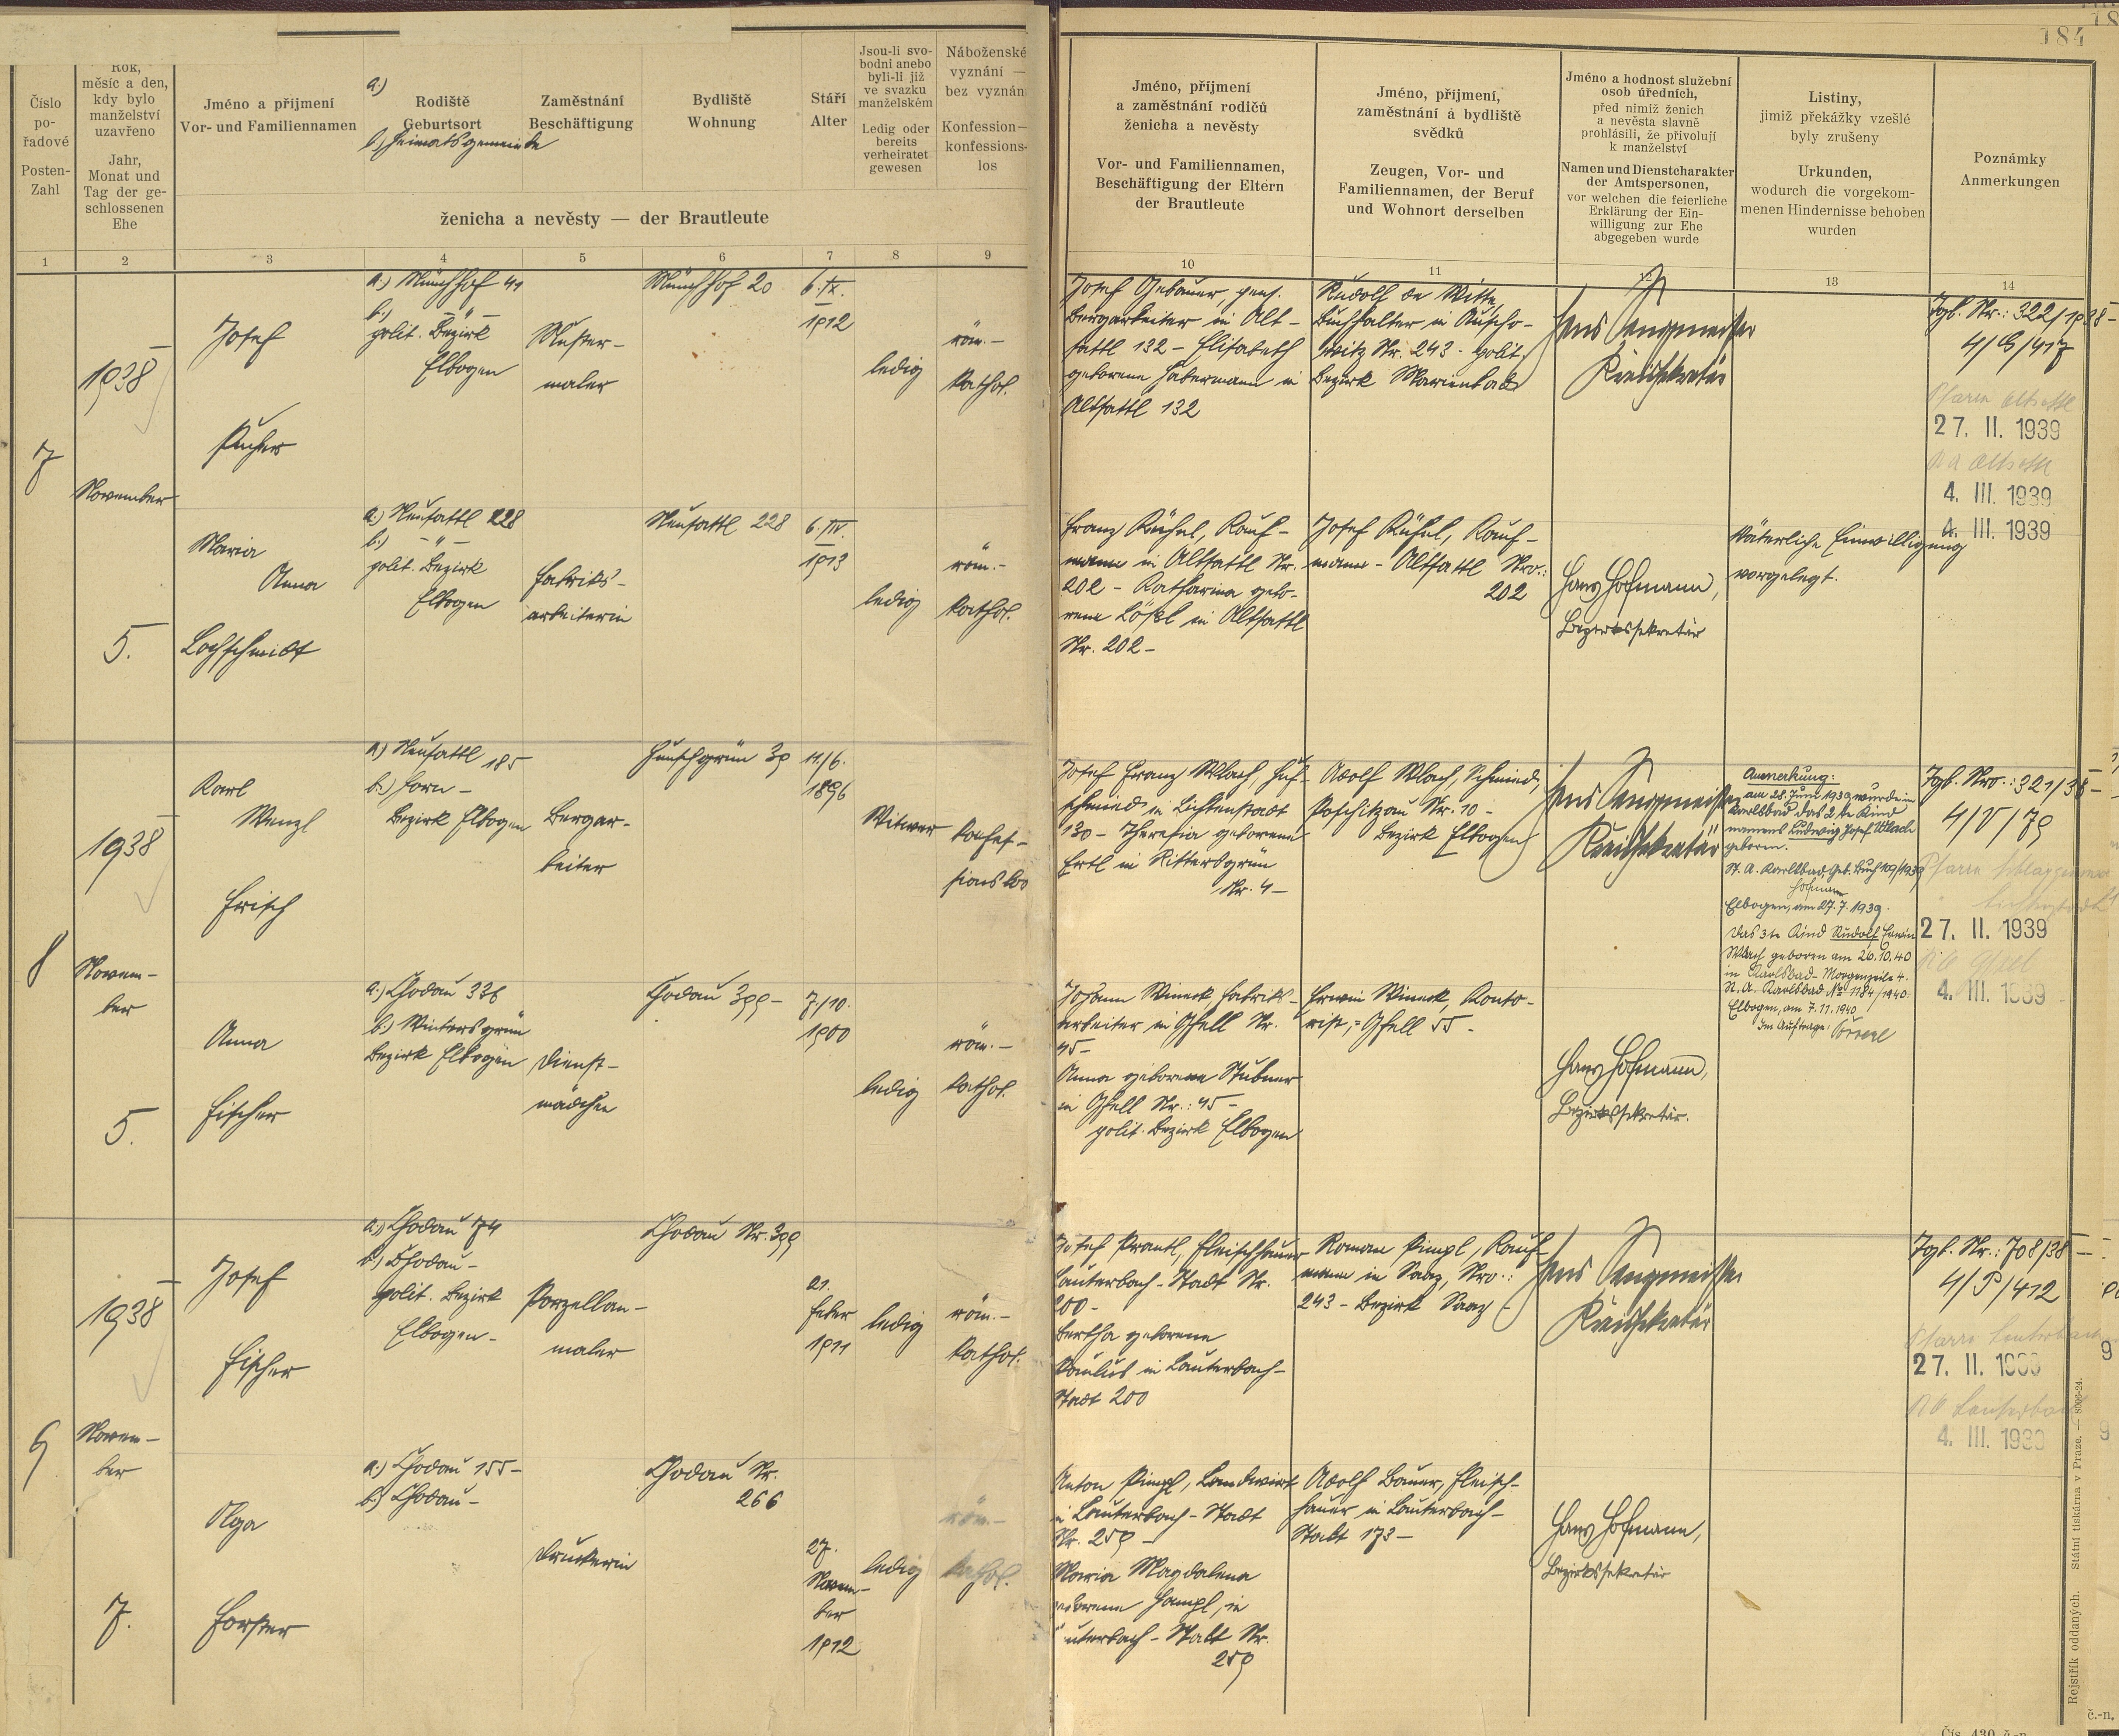 184
Číslo
po-
řadové
Posten-
Zahl
Rok,
měsíc a den,
kdy bylo
manželství
uzavřeno
Jahr,
Monat und
Tag der ge-
schlossenen
Ehe
Jméno a příjmení
Vor- und Familiennamen
a.)
Rodiště
Geburtsort
b.) Heimatsgemeinde
Zaměstnání
Beschäftigung
Bydliště
Wohnung
Stáří
Alter
Jsou-li svo-
bodni anebo
byli-li již
ve svazku
manželském
Ledig oder
bereits
verheiratet
gewesen
Náboženské
vyznání —
bez vyznán
Konfession—
konfessions-
los
ženicha a nevěsty — der Brautleute
Jméno, příjmení
a zaměstnání rodičů
ženicha a nevěsty
Vor- und Familiennamen,
Beschäftigung der Eltern
der Brautleute
Jméno, příjmení,
zaměstnání a bydliště
svědků
Zeugen, Vor- und
Familiennamen, der Beruf
und Wohnort derselben
Jméno a hodnost služební
osob úředních,
před nimiž ženich
a nevěsta slavně
prohlásili, že přivolují
k manželství
Namen und Dienstcharakter
der Amtspersonen,
vor welchen die feierliche
Erklärung der Ein-
willigung zur Ehe
abgegeben wurde
Listiny,
jimiž překážky vzešlé
byly zrušeny
Urkunden,
wodurch die vorgekom-
menen Hindernisse behoben
wurden
Poznámky
Anmerkungen
1 2 3 4 5 6 7 8 9 10 11 12 13 14
7
1938
November
5.
Josef
Pucher
a.) Münchhof 41
b.) - " -
polit. Bezirk
Elbogen
Muster-
maler
Münchhof 20
6. IX.
1912
ledig
röm.-
kathol.
Josef Gebauer, pens.
Bergarbeiter in Alt-
sattl 132 - Elisabeth
geborene Habermann in
Altsattl 132
Rudolf de Witte,
Buchhalter in Auscho-
witz Nr. 243 - polit.
Bezirk Marienbad
Hans Langmeister
Kreissekretär
Tgb. Nr.: 322/1938-
4/G/417
Pfarre Altsattl
27. II. 1939
4. III. 1939
4. III. 1939
Maria
Anna
Lochschmidt
a.) Neusattl 228
b.) - " -
polit. Bezirk
Elbogen
Fabriks-
arbeiterin
Neusattl 228
6. IV.
1913
ledig
röm.-
kathol.
Franz Rühsel, Kauf-
mann in Altsattl Nr.
202 - Katharina gebo-
rene Lößl in Altsattl
Nr. 202 -
Josef Rühsel, Kauf-
mann - Altsattl Nro.:
202
Hans Hofmann,
Bezirkssekretär
Väterliche Einwilligung
vorgelegt.
8
1938
Novem-
ber
5.
Karl
Wenzl
Frisch
a) Neusattl 185
b.) Horn -
Bezirk Elbogen
Bergar-
beiter
Hunschgrün 39
11./6.
1896
Witwer
konfes-
sionslos
Josef Franz Wlach, Huf-
schmied in Lichtenstadt
130 - Theresia geborene
Ertl in Rittersgrün
Nr. 4 -
Adolf Wlach, Schmied,
Poschitzau Nr. 10 -
Bezirk Elbogen
Hans Langmeister
Kreissekretär
Anmerkung:
am 28. Juni 1939 wurde in
Karlsbad das 2te Kind
namens Ludwig Josef Wlach
geboren.
St. A. Karlsbad, Geb. Buch 109/1939
Hofmann
Elbogen, am 27. 7. 1939.
Das 3te Kind Rudolf Erwin
Wlach geboren am 26.10.40
in Karlsbad - Morgenzeile 4.
St. A. Karlsbad No 1184/1940.
Elbogen, am 7. 11. 1940
Im Auftrage:
Tgb. Nro.: 321/38-
4/V/79
27. II. 1939
4. III. 1939
Anna
Fischer
a.) Chodau 336
b.) Wintersgrün
Bezirk Elbogen
Dienst-
mädchen
Chodau 399-
7./10.
1900
ledig
röm.-
kathol.
Johann Wineck, Fabriks-
arbeiter in Gfell Nr.
45-
Anna geborene Stubner
in Gfell Nr.: 45 -
polit. Bezirk Elbogen
Erwin Wineck, Konto-
rist, - Gfell 55 -
Hans Hofmann,
Bezirkssekretär.
9
1938
Novem-
ber
7.
Josef
Fischer
a.) Chodau 74
b.) Chodau -
polit. Bezirk
Elbogen -
Porzellan-
maler
Chodau Nr. 399
21.
Feber
1911
ledig
röm.-
kathol.
Josef Prantl, Fleischhauer
Lauterbach - Stadt Nr.
200 -
Bertha geborene
Paulus in Lauterbach-
Stadt 200
Roman Pimpl, Kauf-
mann in Saaz, Nro.:
243 - Bezirk Saaz -
Hans Langmeister
Kreissekretär
Tgb. Nr.: 708/38 -
4/P/412
Pfarre Lauterbach
27. II. 1939
Lauterbach
4. III. 1939
Olga
Forster
a.) Chodau 155 -
b.) Chodau -
Druckerin
Chodau Nr.
266
27.
Novem-
ber
1912
ledig
röm.-
kathol.
Anton Pimpl, Landwirt
in Lauterbach - Stadt
Nr. 259 -
Maria Magdalena
geborene Hampl, in
Lauterbach - Stadt Nr.
259
Adolf Bauer, Fleisch-
hauer in Lauterbach -
Stadt 173 -
Hans Hofmann,
Bezirkssekretär
Rejstřík oddaných. Státní tiskárna v Praze. — 8006-24.
č.-n.
Čís. 430 č.-n.